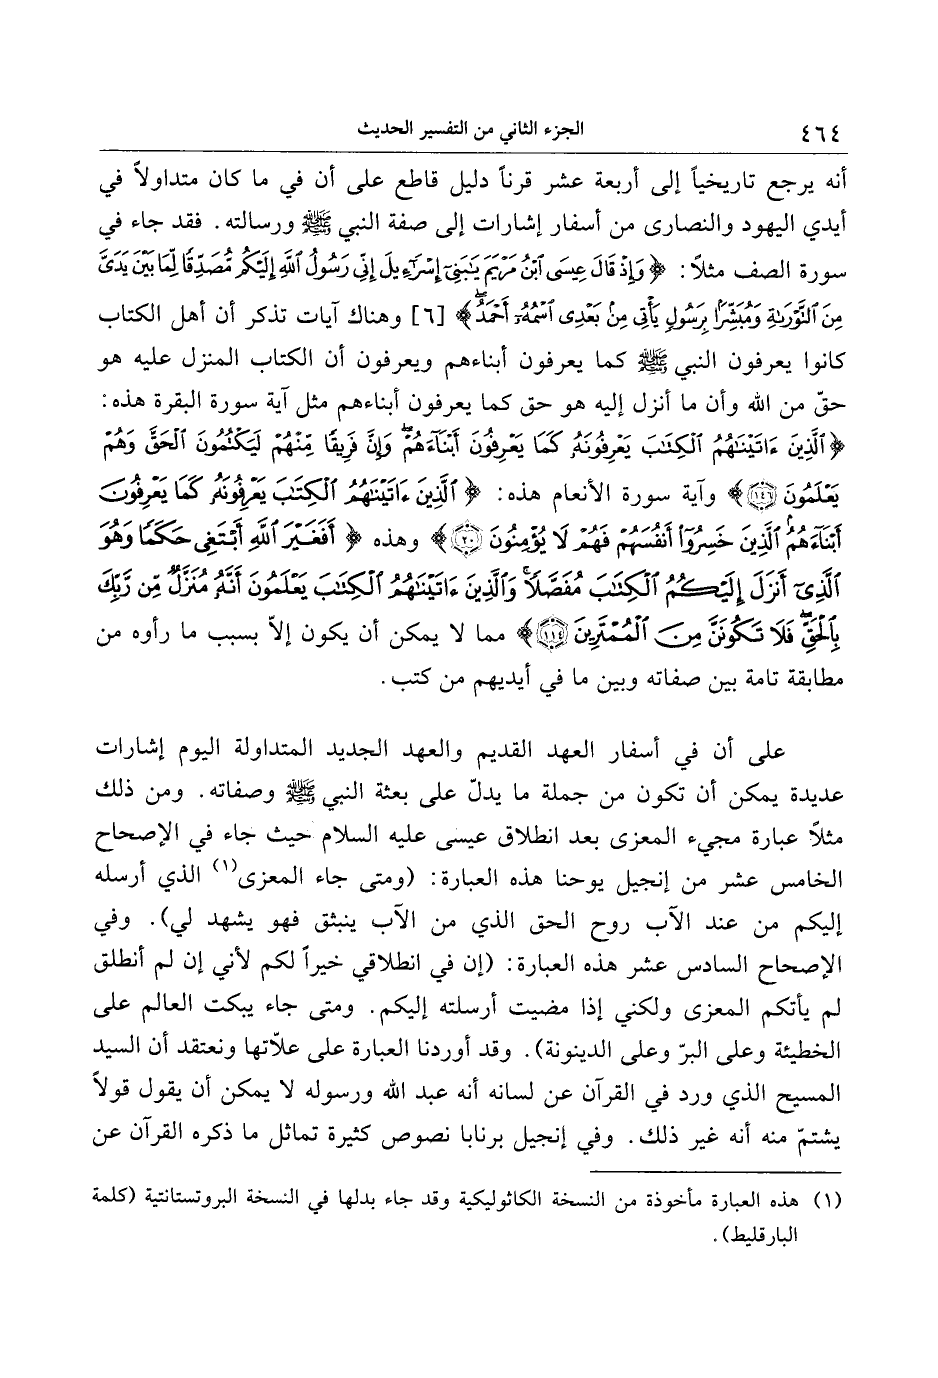 ٤٦٤ الجزء الثاني من التفسير الحديث
أنه يرجع تاريخياً إلى أربعة عشر قرناً دليل قاطع على أن في ما كان متداولاً في
أيدي اليهود والنصارى من أسفار إشارات إلى صفة النبي ﷺ ورسالته. فقد جاء في
سورة الصف مثلاً: ﴿وَإِذْ قَالَ عِيسَى ٱبْنُ مَرْيَمَ يَٰبَنِىٓ إِسْرَٰٓءِيلَ إِنِّى رَسُولُ ٱللَّهِ إِلَيْكُم مُّصَدِّقًا لِّمَا بَيْنَ يَدَىَّ
مِنَ ٱلتَّوْرَىٰةِ وَمُبَشِّرًۢا بِرَسُولٍ يَأْتِى مِنۢ بَعْدِى ٱسْمُهُۥٓ أَحْمَدُ﴾ [٦] وهناك آيات تذكر أن أهل الكتاب
كانوا يعرفون النبي ﷺ كما يعرفون أبناءهم ويعرفون أن الكتاب المنزل عليه هو
حقّ من الله وأن ما أنزل إليه هو حق كما يعرفون أبناءهم مثل آية سورة البقرة هذه:
﴿ٱلَّذِينَ ءَاتَيْنَٰهُمُ ٱلْكِتَٰبَ يَعْرِفُونَهُۥ كَمَا يَعْرِفُونَ أَبْنَآءَهُمْ وَإِنَّ فَرِيقًا مِّنْهُمْ لَيَكْتُمُونَ ٱلْحَقَّ وَهُمْ
يَعْلَمُونَ ١٤٦﴾ وآية سورة الأنعام هذه: ﴿ٱلَّذِينَ ءَاتَيْنَٰهُمُ ٱلْكِتَٰبَ يَعْرِفُونَهُۥ كَمَا يَعْرِفُونَ
أَبْنَآءَهُمُ ٱلَّذِينَ خَسِرُوٓا۟ أَنفُسَهُمْ فَهُمْ لَا يُؤْمِنُونَ ٢٠﴾ وهذه ﴿أَفَغَيْرَ ٱللَّهِ أَبْتَغِى حَكَمًا وَهُوَ
ٱلَّذِىٓ أَنزَلَ إِلَيْكُمُ ٱلْكِتَٰبَ مُفَصَّلًا وَٱلَّذِينَ ءَاتَيْنَٰهُمُ ٱلْكِتَٰبَ يَعْلَمُونَ أَنَّهُۥ مُنَزَّلٌ مِّن رَّبِّكَ
بِٱلْحَقِّ فَلَا تَكُونَنَّ مِنَ ٱلْمُمْتَرِينَ ١١٤﴾ مما لا يمكن أن يكون إلاّ بسبب ما رأوه من
مطابقة تامة بين صفاته وبين ما في أيديهم من كتب.
على أن في أسفار العهد القديم والعهد الجديد المتداولة اليوم إشارات
عديدة يمكن أن تكون من جملة ما يدلّ على بعثة النبي ﷺ وصفاته. ومن ذلك
مثلاً عبارة مجيء المعزى بعد انطلاق عيسى عليه السلام حيث جاء في الإصحاح
الخامس عشر من إنجيل يوحنا هذه العبارة: (ومتى جاء المعزى(١) الذي أرسله
إليكم من عند الآب روح الحق الذي من الآب ينبثق فهو يشهد لي). وفي
الإصحاح السادس عشر هذه العبارة: (إن في انطلاقي خيراً لكم لأني إن لم أنطلق
لم يأتكم المعزى ولكني إذا مضيت أرسلته إليكم. ومتى جاء يبكت العالم على
الخطيئة وعلى البرّ وعلى الدينونة). وقد أوردنا العبارة على علاّتها ونعتقد أن السيد
المسيح الذي ورد في القرآن عن لسانه أنه عبد الله ورسوله لا يمكن أن يقول قولاً
يشتمّ منه أنه غير ذلك. وفي إنجيل برنابا نصوص كثيرة تماثل ما ذكره القرآن عن
(١) هذه العبارة مأخوذة من النسخة الكاثوليكية وقد جاء بدلها في النسخة البروتستانتية (كلمة
البارقليط).